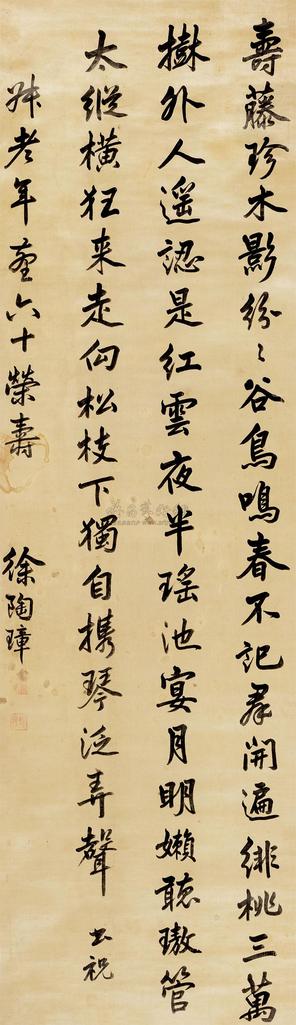 壽藤珍木影紛〻谷鳥鳴春不記羣開遍緋桃三萬
樹外人遥認是紅雲夜半瑶池宴月明嬾聽璈管
太縱橫狂来走向松枝下獨自携琴泛弄聲 書祝
年老年臺六十榮壽
徐陶璋